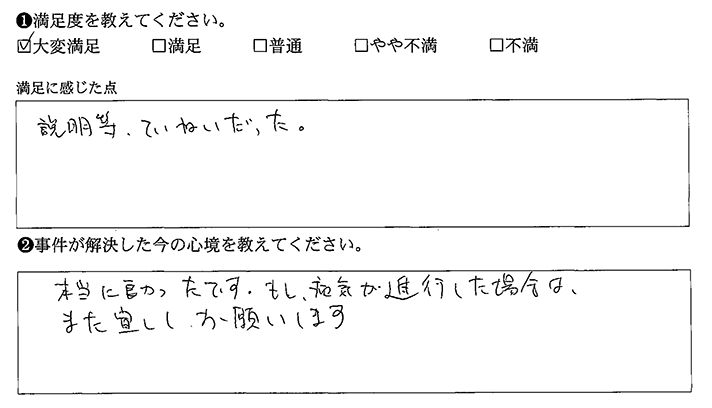 ❶満足度を教えてください。
☑大変満足 □満足 □普通 □やや不満 □不満
満足に感じた点
説明等、ていねいだった。
❷事件が解決した今の心境を教えてください。
本当に良かったです。もし、病気が進行した場合は、
また宜しくお願いします